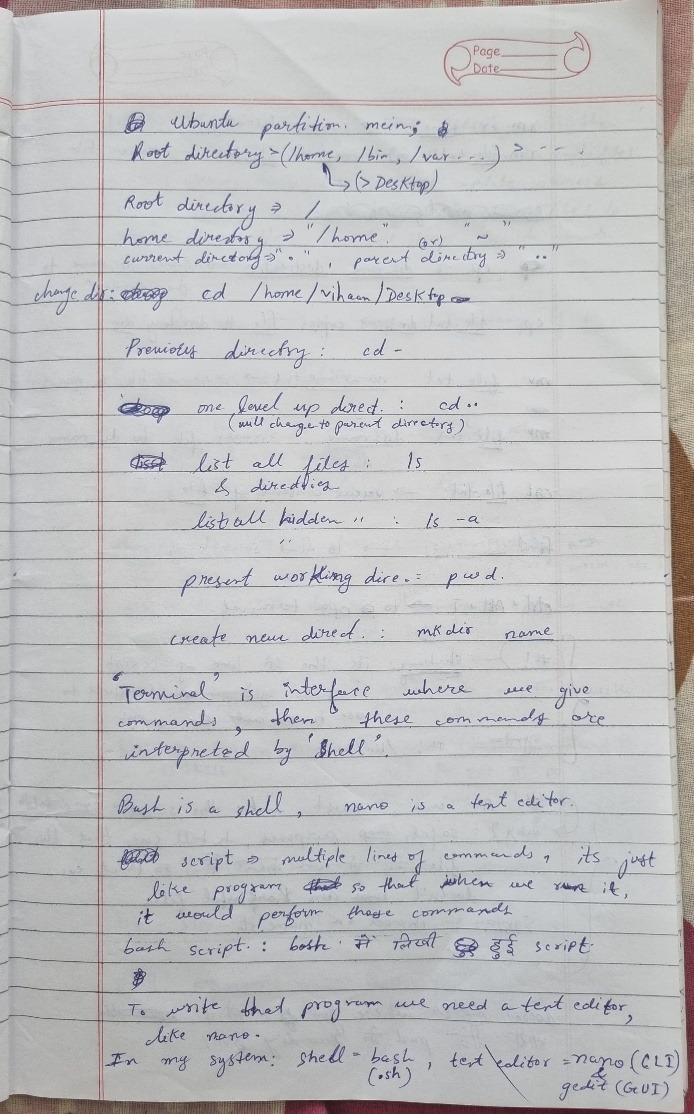 Page
Date
Ubuntu partition mein;
Root directory > (/home, /bin, /var ...) > --- .
↳ (> Desktop)
Root directory ⇒ /
home directory ⇒ "/home" (or) "~"
current directory ⇒ "." , parent directory ⇒ ".."
change dir: cd /home/vihaan/Desktop
Previous directory : cd -
one level up direct. : cd ..
(will change to parent directory)
list all files : ls
& directries
list all hidden " : ls -a
"
present working dire. : pwd.
create new direct. : mkdir name
"Terminal" is interface where we give
commands, then these commands are
interpreted by 'Shell'.
Bash is a shell, nano is a text editor.
script ⇒ multiple lines of commands, its just
like program so that when we run it,
it would perform those commands
bash script. : bash में लिखी हुई script.
To write that program we need a text editor,
like nano.
In my system: shell = bash , text editor = nano (CLI)
(.sh) & gedit (GUI)